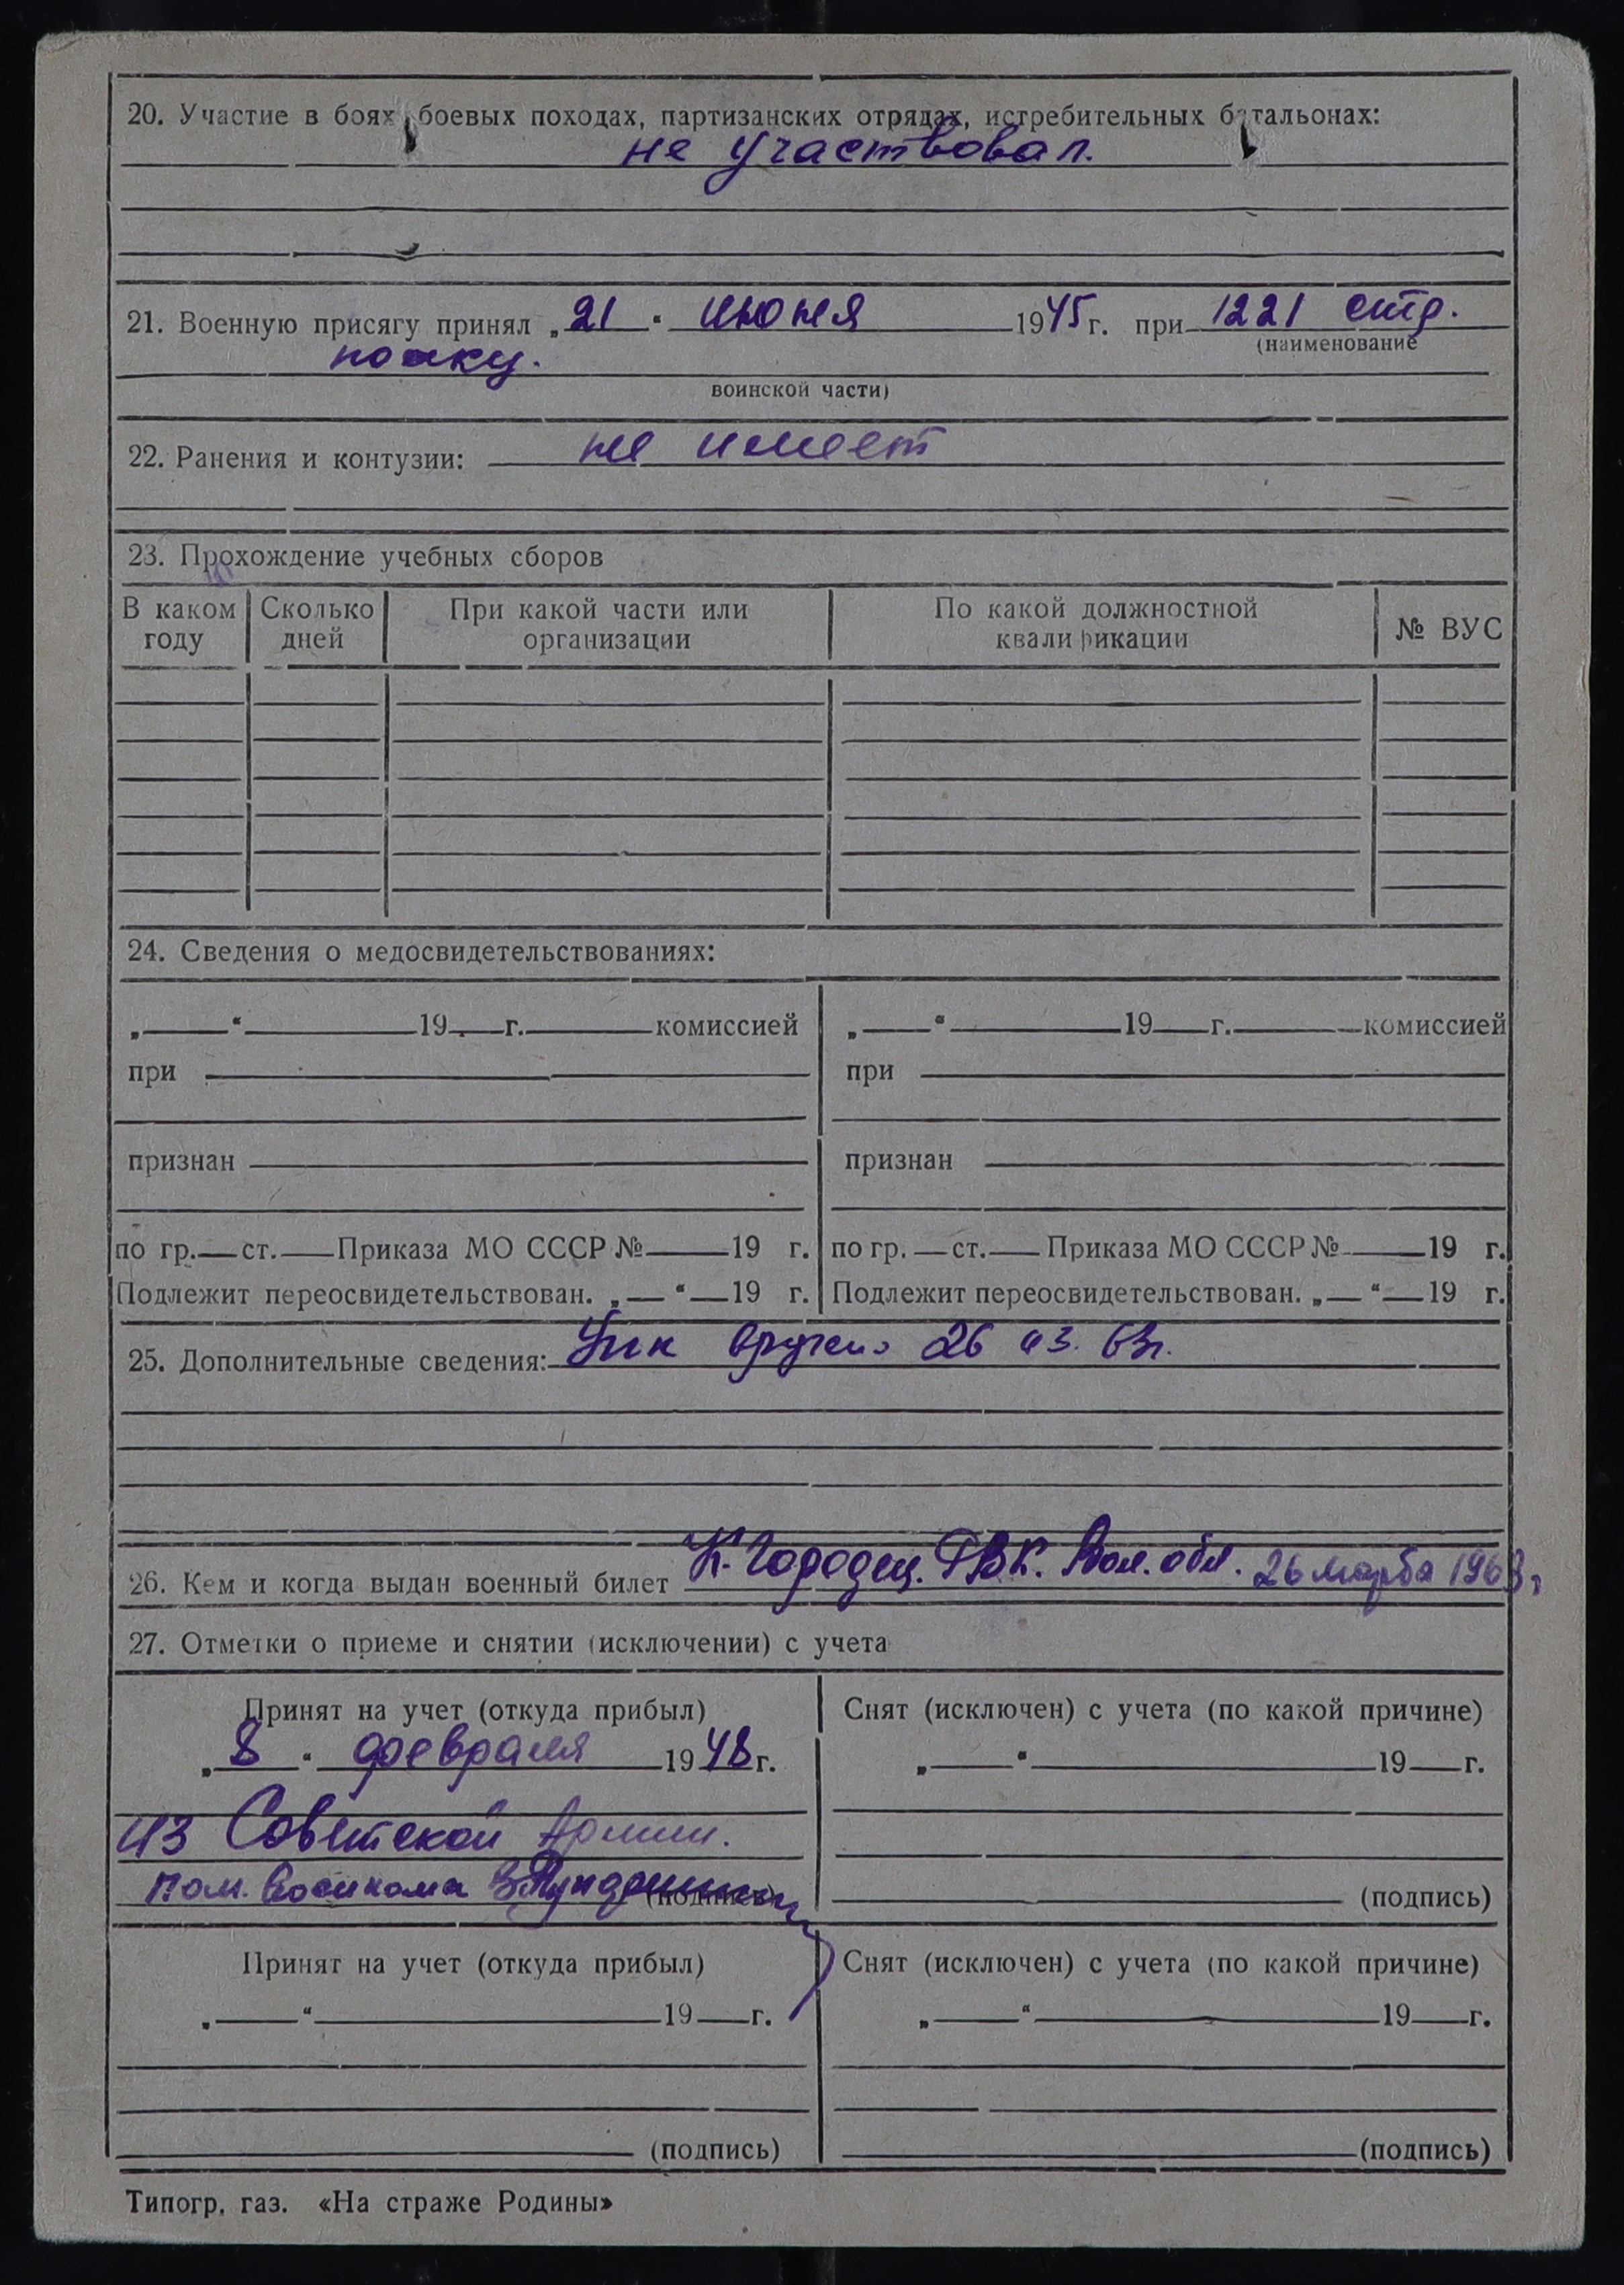 20. Участие в боях, боевых походах, партизанских отрядах, истребительных батальонах:
не участвовал.
21. Военную присягу принял „21“ июня 1945 г. при 1221 стр.
(наименование
полку.
воинской части)
22. Ранения и контузии: не имеет
23. Прохождение учебных сборов
В каком году Сколько дней При какой части или организации По какой должностной квалификации № ВУС
24. Сведения о медосвидетельствованиях:
„ “ 19 г. комиссией „ “ 19 г. комиссией
при при
признан признан
по гр. ст. Приказа МО СССР № 19 г. по гр. ст. Приказа МО СССР № 19 г.
Подлежит переосвидетельствован. „ “ 19 г. Подлежит переосвидетельствован. „ “ 19 г.
25. Дополнительные сведения: вручено 26 03. 63г.
26. Кем и когда выдан военный билет К. Городец. РВК. Вол. обл. 26 марта 1963г
27. Отметки о приеме и снятии (исключении) с учета
Принят на учет (откуда прибыл) Снят (исключен) с учета (по какой причине)
„8“ февраля 1948 г. „ “ 19 г.
из Советской Армии.
Пом. Военкома (подпись) (подпись)
Принят на учет (откуда прибыл) Снят (исключен) с учета (по какой причине)
„ “ 19 г. „ “ 19 г.
(подпись) (подпись)
Типогр. газ. «На страже Родины»